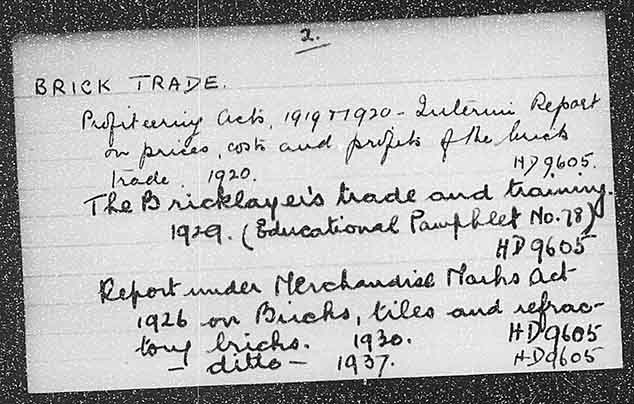 2.
BRICK TRADE.
Profiteering Acts, 1919 & 1920 - Interim Report
on prices, costs and profits of the brick
trade. 1920. HD9605.
The Bricklayer's trade and training.
1929. (Educational Pamphlet No. 78)
HD9605
Report under Merchandise Marks Act
1926 on Bricks, tiles and refrac-
tory bricks. 1930. HD9605
- ditto - 1937. HD9605